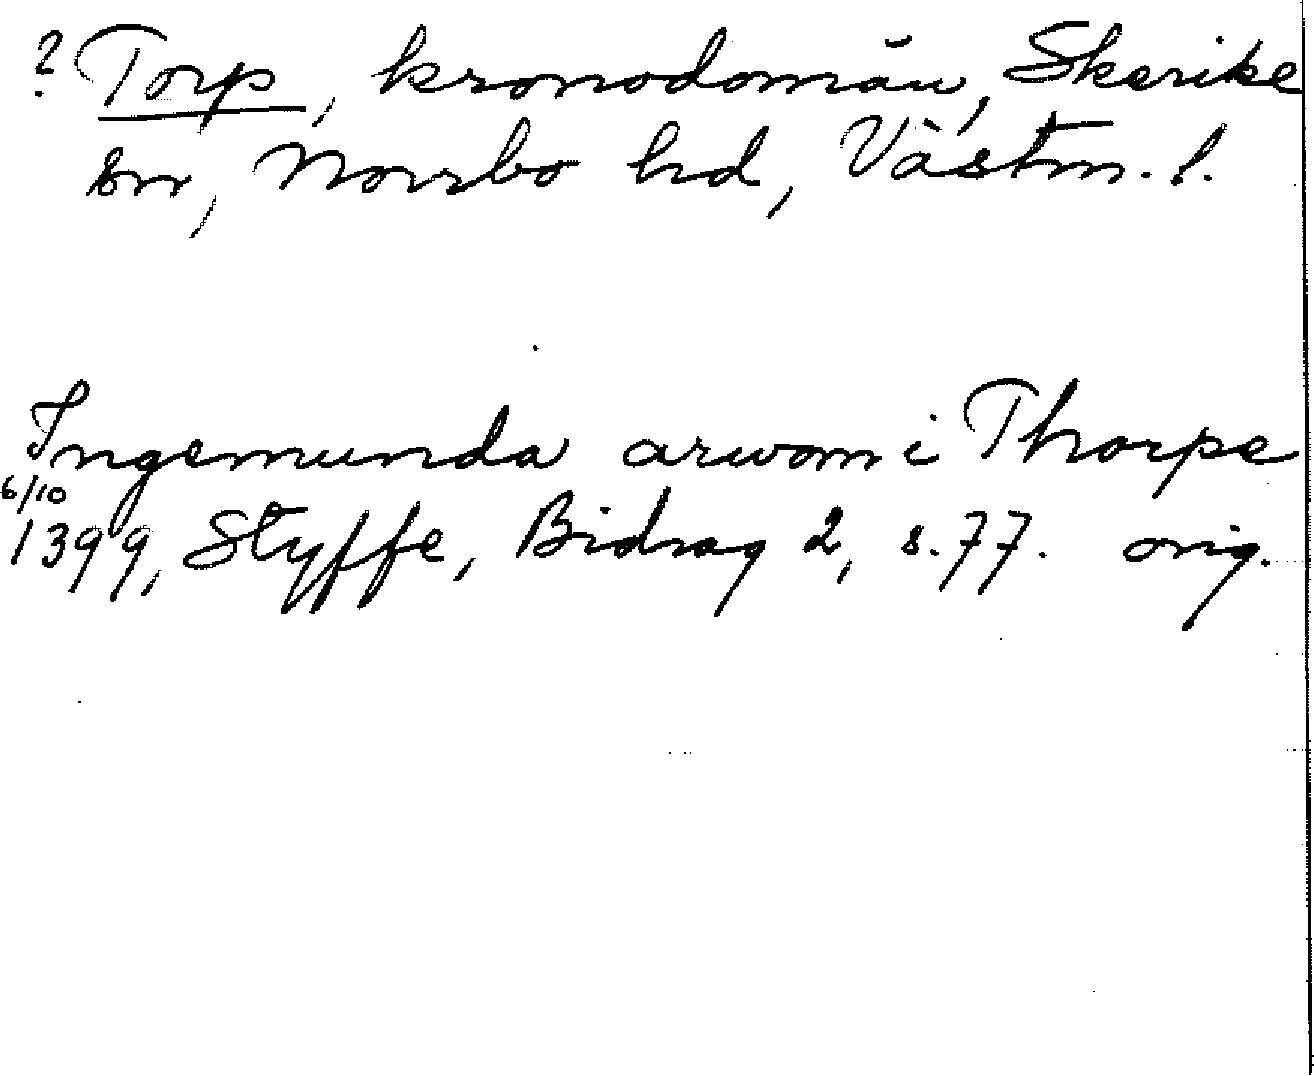 ? Torp, kronodomän, Skerike
sn, Norrbo hd, Västm. l.
Ingemunda arwom i Thorpe
6/10
1399, Styffe, Bidrag 2, s. 77. orig.